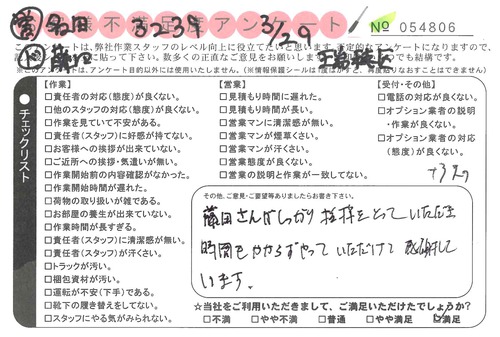 営 多田
お客様不満足度アンケート
3239
3/29
No 054806
作 藤田
このアンケートは、弊社作業スタッフのレベル向上に役立てたいと思います。否定的なアンケートになりますので、
に貼って下さい。数多くの正直なご意見をお願いします。でも結構です。
※このアンケートは、アンケート目的以外には使用いたしません。(※情報保護シールは1度はがすと、再度貼りなおすことはできません)
チェックリスト
【作業】
□責任者の対応(態度)が良くない。
□他のスタッフの対応(態度)が良くない。
□作業を見ていて不安がある。
□責任者(スタッフ)に好感が持てない。
□お客様への挨拶が出来ていない。
□ご近所への挨拶・気遣いが無い。
□作業開始前の内容確認がなかった。
□作業開始時間が遅れた。
□荷物の取り扱いが雑である。
□お部屋の養生が出来ていない。
□作業時間が長すぎる。
□責任者(スタッフ)に清潔感が無い。
□責任者(スタッフ)が汗くさい。
□トラックが汚い。
□梱包資材が汚い。
□運転が不安(下手)である。
□靴下の履き替えをしてない。
□スタッフにやる気がみられない。
【営業】
□見積もり時間に遅れた。
□見積もり時間が長い。
□営業マンに清潔感が無い。
□営業マンが煙草くさい。
□営業マンが汗くさい。
□営業態度が良くない。
□営業の説明と作業が一致してない。
【受付・その他】
□電話の対応が良くない。
□オプション業者の説明
・作業が良くない。
□オプション業者の対応
(態度)が良くない。
その他、ご意見・ご要望等ありましたらお書き下さい。
藤田さんがしっかり指揮をとっていただき
時間もかからずやっていただけて感謝して
います。
☆当社をご利用いただきまして、ご満足いただけたでしょうか?
□不満 □やや不満 □普通 □やや満足 ☑満足